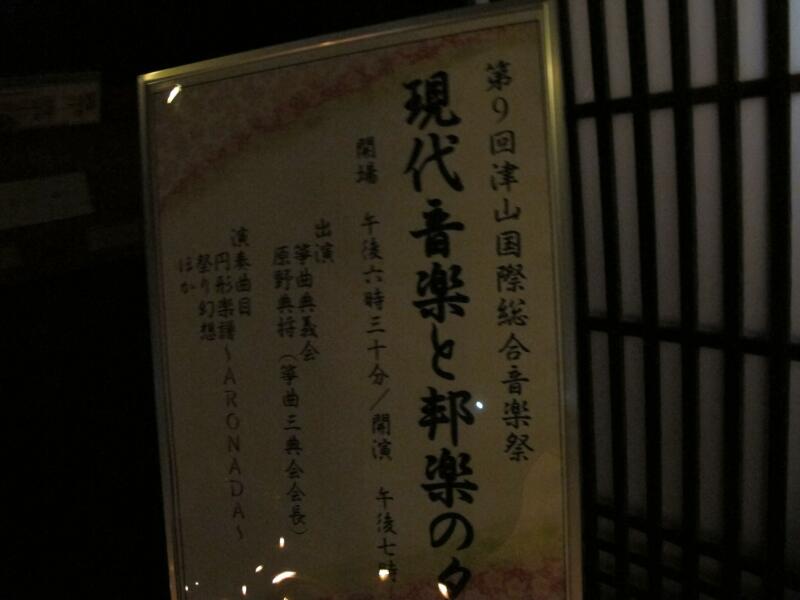 第9回津山国際総合音楽祭
現代音楽と邦楽の夕
開場 午後六時三十分／開演 午後七時
出演
箏曲典義会
原野典将（箏曲三典会会長）
演奏曲目
円形楽譜～ARONADA～
祭り幻想
ほか